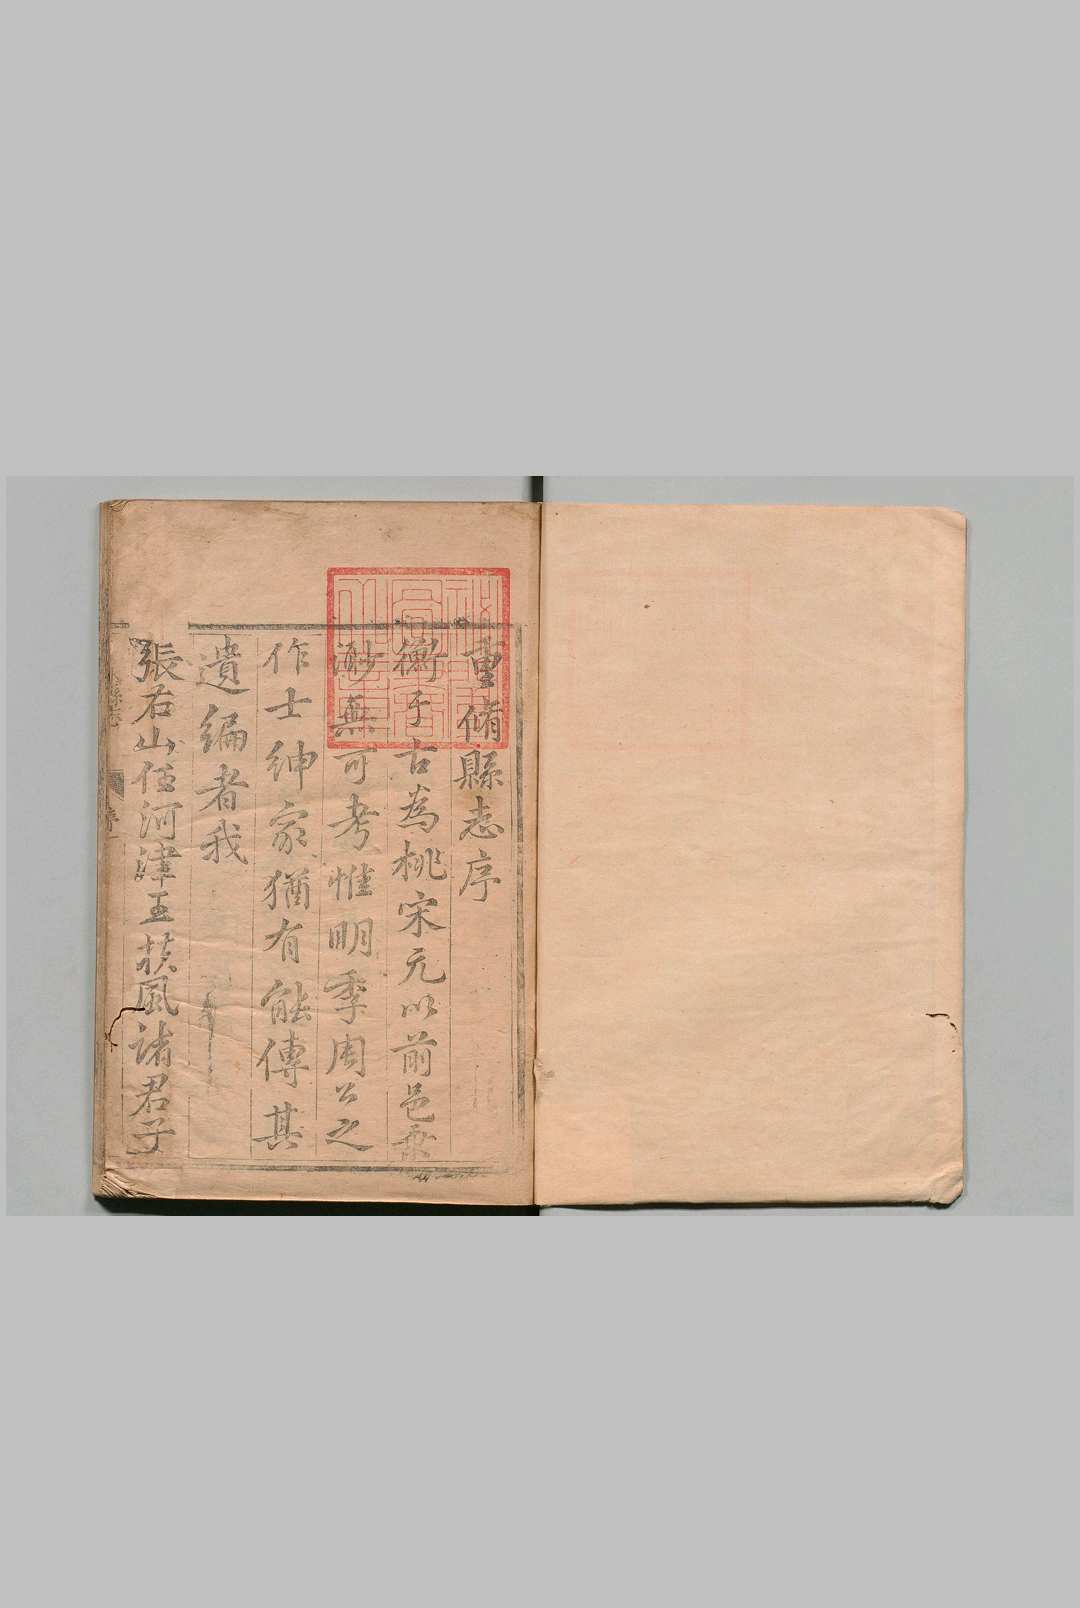 重脩縣志序
衡于古為桃宋元以前邑乘
渺無可考惟明季周公之
作士紳家猶有能傳其
遺編者我
張右山任河津王扶風諸君子